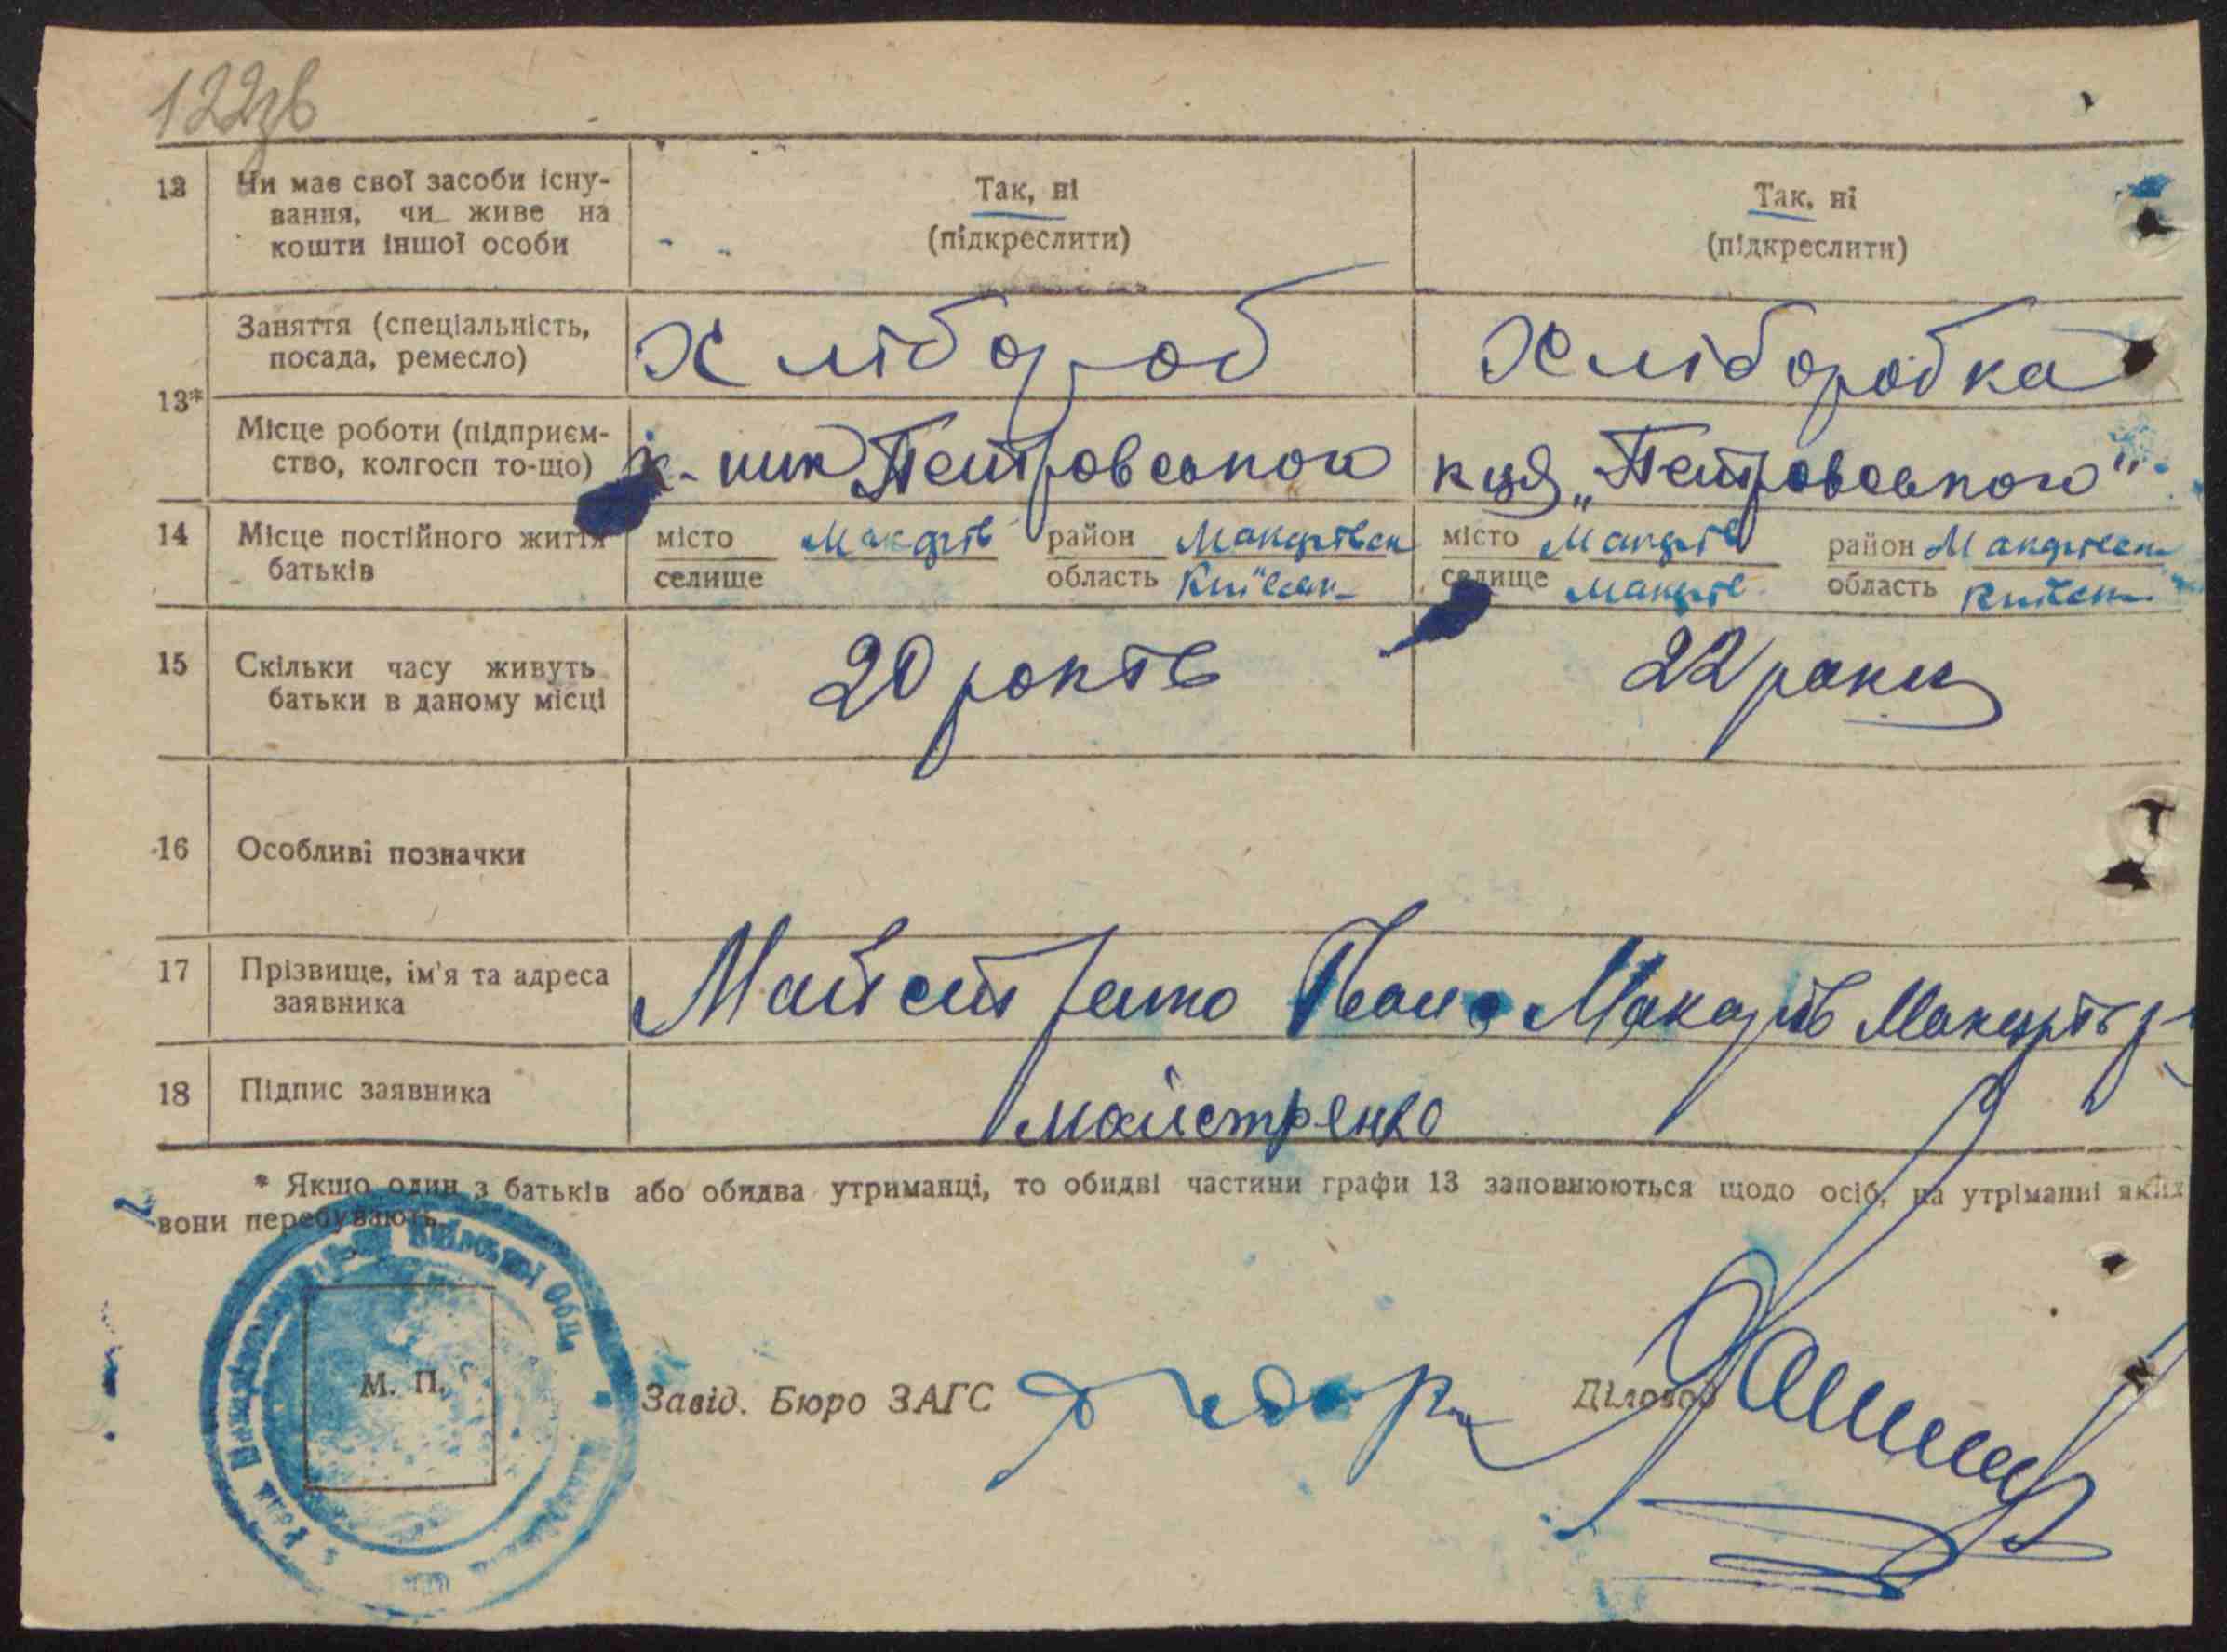 122зв
12 Чи має свої засоби існу-
вання, чи живе на
кошти іншої особи
Так, ні
(підкреслити)
Так, ні
(підкреслити)
13*
Заняття (спеціальність,
посада, ремесло)
Хлібороб
Хліборобка
Місце роботи (підприєм-
ство, колгосп то-що)
к-ник Петровського
к-ця „Петровського"
14 Місце постійного життя
батьків
місто Макарів район Макарівськ
селище область Київськ
місто Макарів район Макарівськ
селище Макарів область Київськ
15 Скільки часу живуть
батьки в даному місці
20 років
22 роки
16 Особливі позначки
17 Прізвище, ім'я та адреса
заявника
Майстренко Іван Макарів Макарів р-
18 Підпис заявника
Майстренко
* Якщо один з батьків або обидва утриманці, то обидві частини графи 13 заповнюються щодо осіб, на утріманні яких
вони перебувають.
Київської Обл
М. П.
Завід. Бюро ЗАГС
Діловод